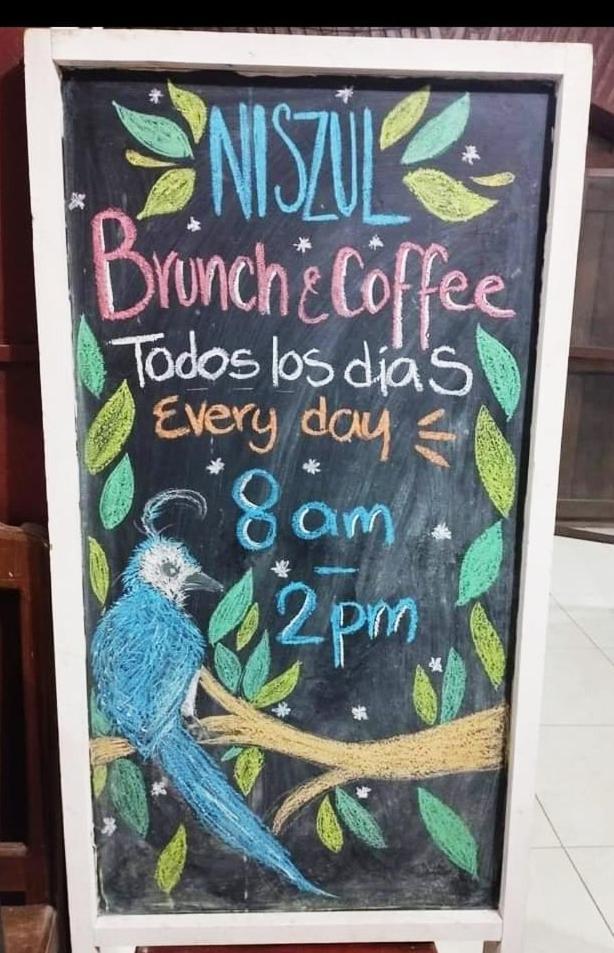 NISZUL
Brunch & Coffee
Todos los días
Every day
8 am
-
2 pm